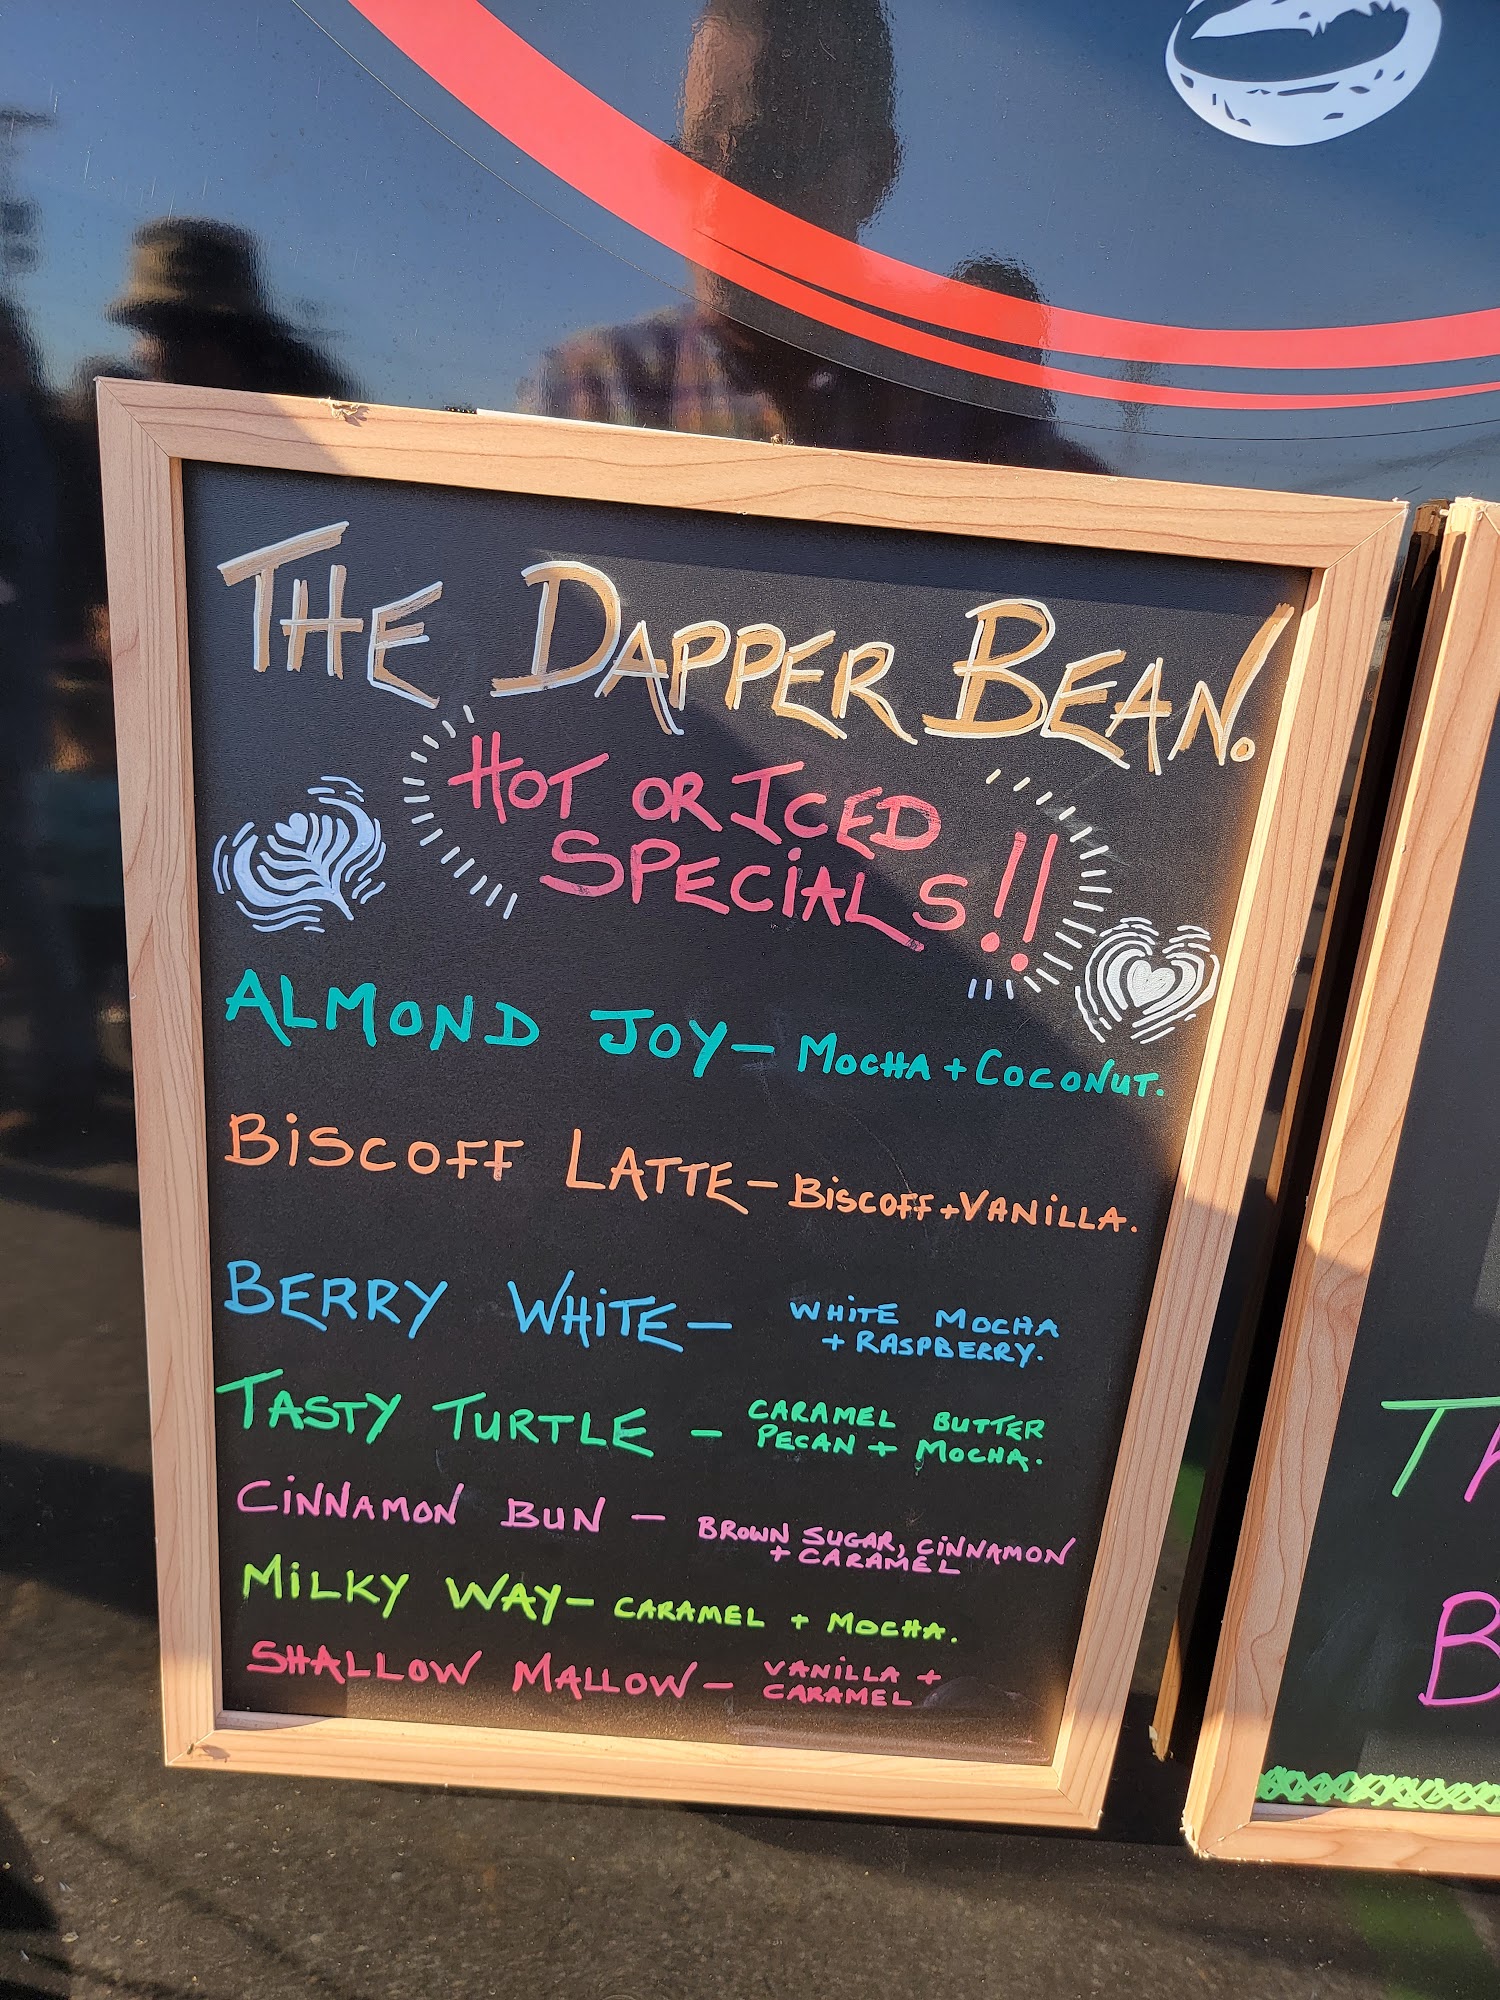 THE DAPPER BEAN.
HOT OR ICED
SPECIALS!!
ALMOND JOY - MOCHA + COCONUT.
BISCOFF LATTE - BISCOFF + VANILLA.
BERRY WHITE - WHITE MOCHA
+ RASPBERRY.
TASTY TURTLE - CARAMEL BUTTER
PECAN + MOCHA.
CINNAMON BUN - BROWN SUGAR, CINNAMON
+ CARAMEL
MILKY WAY - CARAMEL + MOCHA.
SHALLOW MALLOW - VANILLA +
CARAMEL